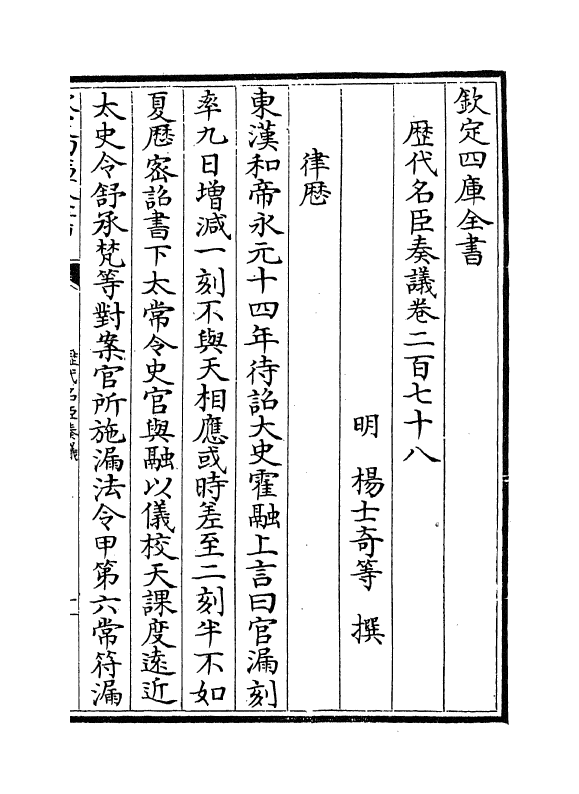 欽定四庫全書
歴代名臣奏議卷二百七十八
明 楊士奇等 撰
律厯
東漢和帝永元十四年待詔大史霍融上言曰官漏刻
率九日増減一刻不與天相應或時差至二刻半不如
夏厯密詔書下太常令史官與融以儀校天課度逺近
太史令舒承梵等對案官所施漏法令甲第六常符漏
歴代名臣奏議
一